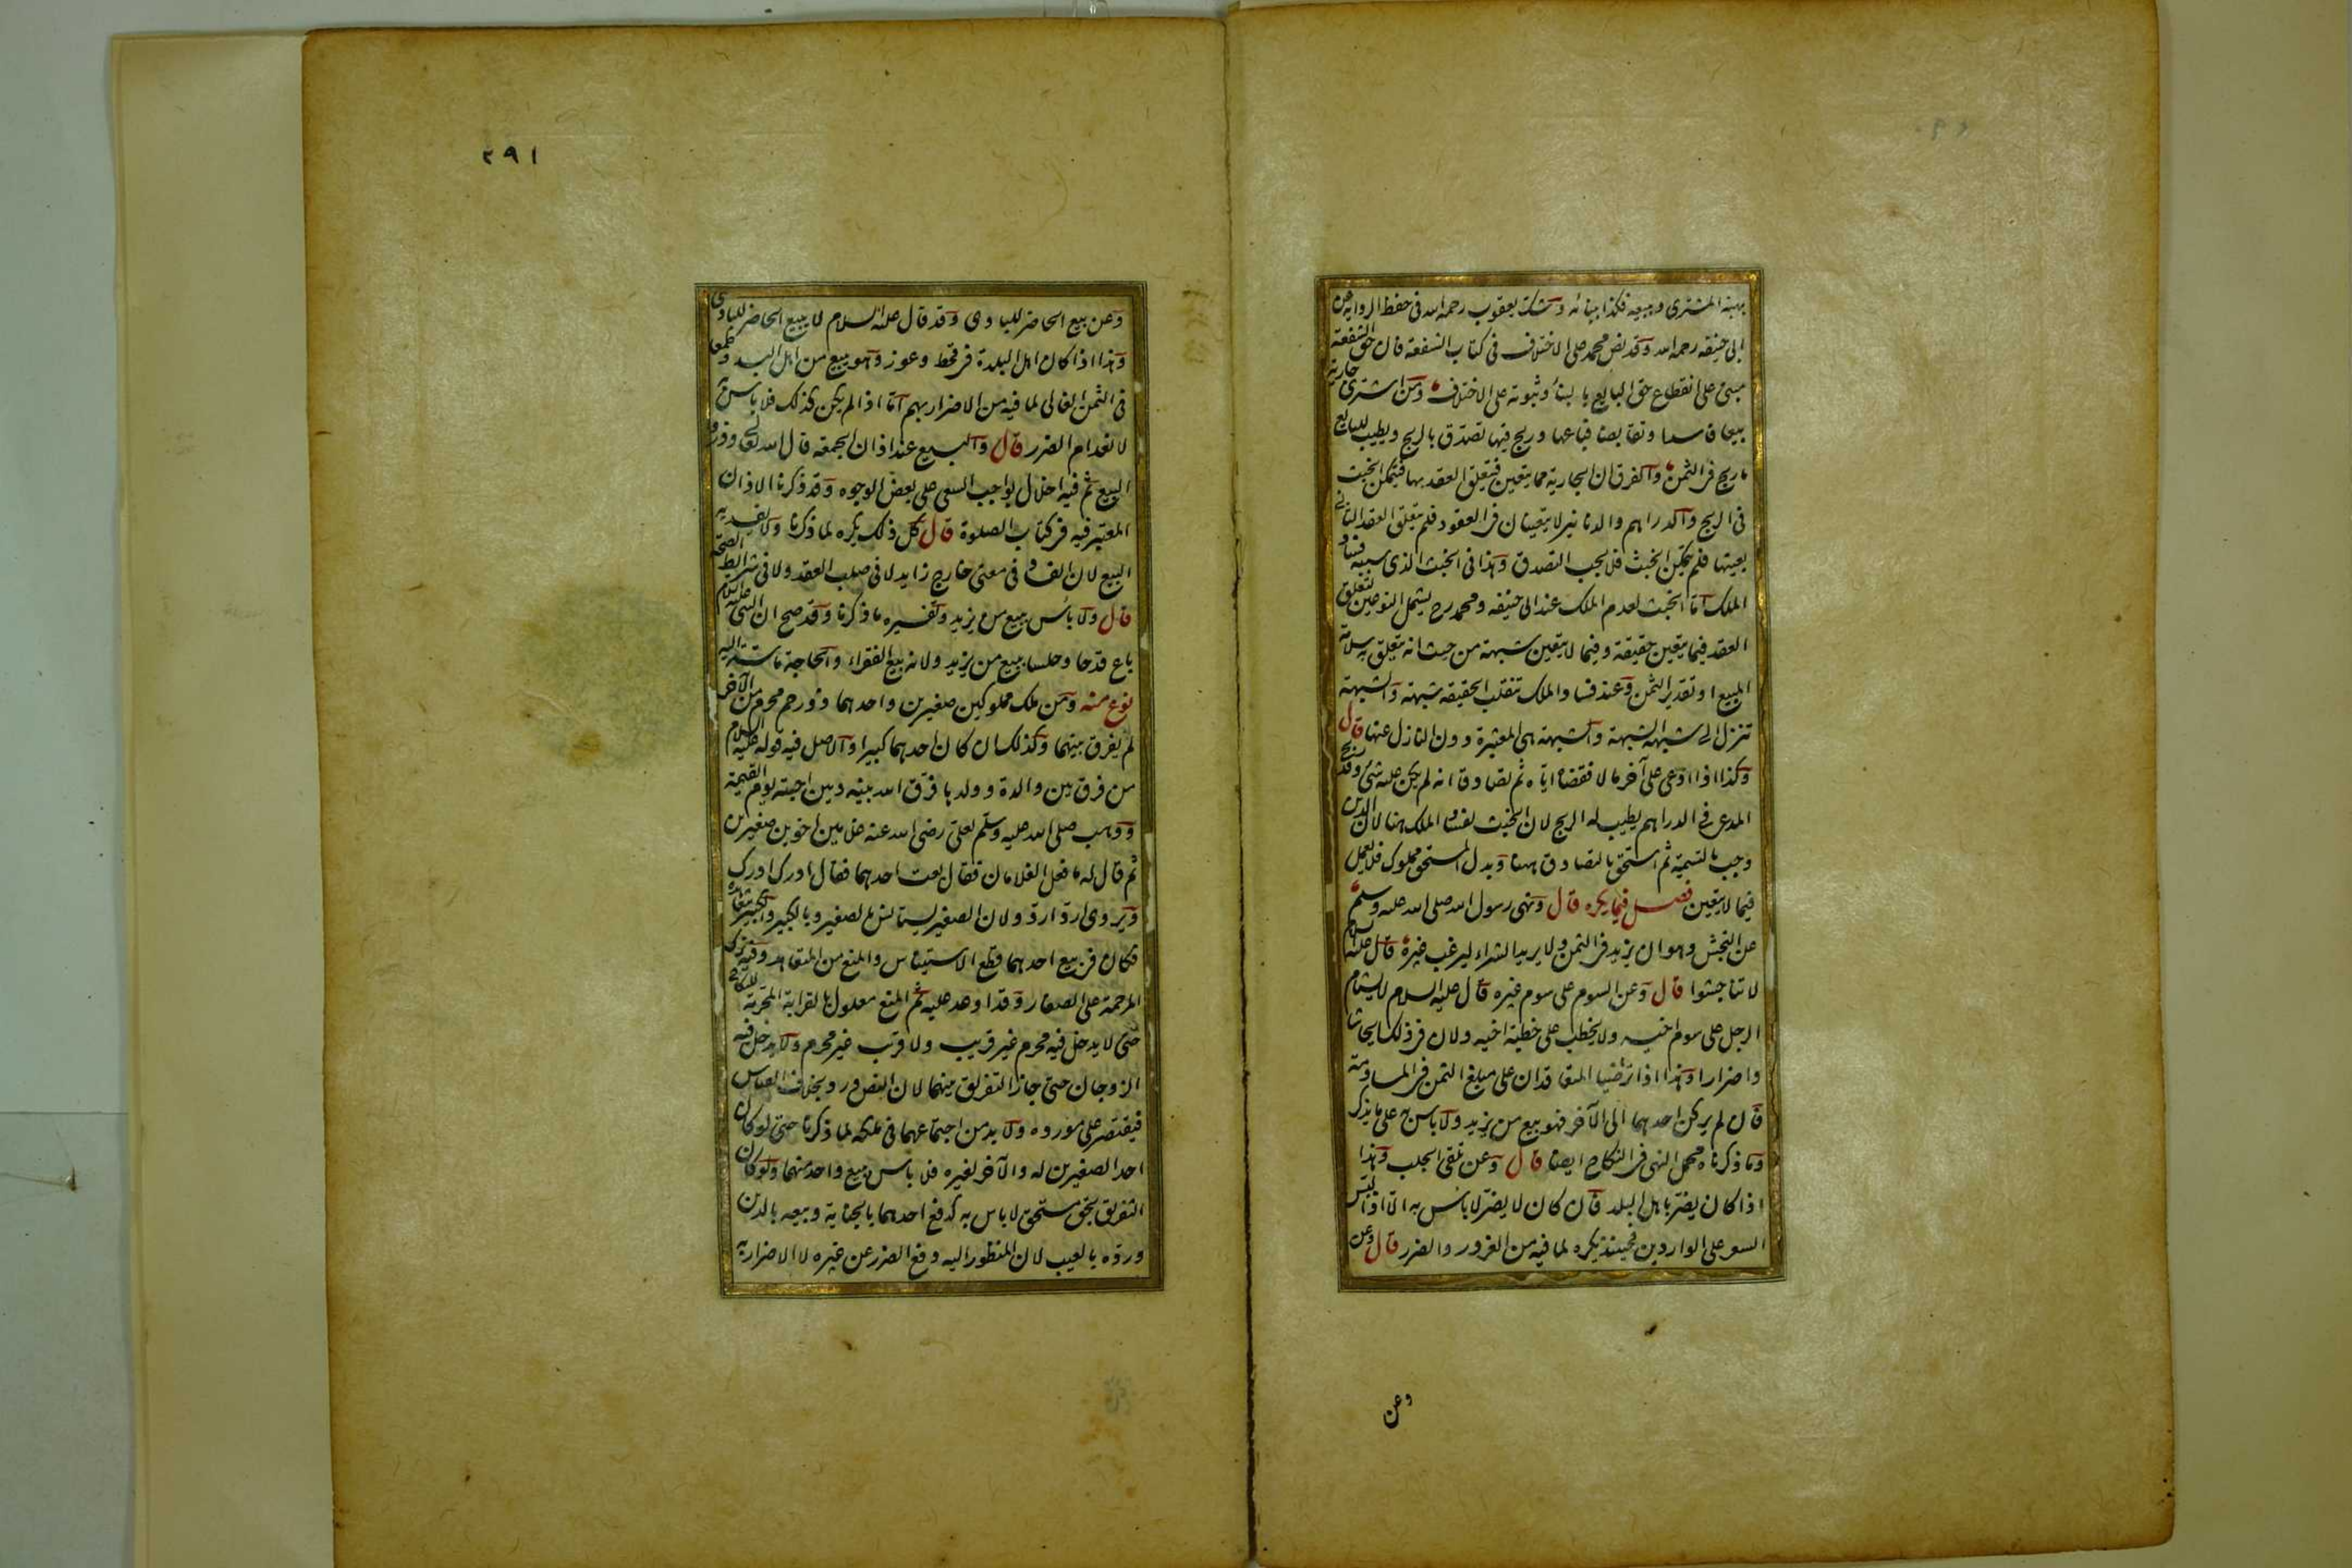 بهبة المشتري وبيعه فكذا ببنائه وشك يعقوب رحمه الله في حفظ الرواية عن
ابي حنيفة رحمه الله وقد نص محمد على الاختلاف في كتاب الشفعة فان حق الشفعة
مبني على انقطاع حق البايع بالبناء وثبوته على الاختلاف ومن اشترى جارية
بيعا فاسدا وتقابضا فباعها وربح فيها تصدق بالربح ويطيب للبايع
ما ربح في الثمن والفرق ان الجارية مما يتعين فيتعلق العقد بها فيتمكن الخبث
في الربح والدراهم والدنانير لا يتعينان في العقود فلم يتعلق العقد الثاني
بعينها فلم يتمكن الخبث فلا يجب التصدق وهذا في الخبث الذي سببه فساد
الملك اما الخبث لعدم الملك عند ابي حنيفة ومحمد رح يشمل النوعين لتعلق
العقد فيما يتعين حقيقة وفيما لا يتعين شبهة من حيث انه يتعلق به سلامة
المبيع او تقدير الثمن وعند فساد الملك تنقلب الحقيقة شبهة والشبهة
تنزل الى شبهة الشبهة والشبهة هي المعتبرة دون النازل عنها قال
وكذا اذا ادعى على آخر مالا فقضاه اياه ثم تصادقا انه لم يكن عليه شئ وقد ربح
المدعي في الدراهم يطيب له الربح لان الخبث لفساد الملك هنا لان الدين
وجب بالتسمية ثم استحق بالتصادق وبدل المستحق مملوك فلا يعمل
فيما لا يتعين فصل فيما يكره قال ونهى رسول الله صلى الله عليه وسلم
عن النجش وهو ان يزيد في الثمن ولا يريد الشراء ليرغب غيره قال عليه السلام
لا تناجشوا قال وعن السوم على سوم غيره قال عليه السلام لا يستام
الرجل على سوم اخيه ولا يخطب على خطبة اخيه ولان في ذلك ايحاشا
واضرارا وهذا اذا تراضيا المتعاقدان على مبلغ الثمن في المساومة
فان لم يركن احدهما الى الآخر فهو بيع من يزيد ولا باس به على ما يذكر
وما ذكرناه محمل النهي في النكاح ايضا قال وعن تلقى الجلب وهذا
اذا كان يضر باهل البلد فان كان لا يضر لا باس به الا اذا لبس
السعر على الواردين فحينئذ يكره لما فيه من الغرور والضرر قال وعن
وعن
٢٩١
وعن بيع الحاضر للبادي وقد قال عليه السلام لا يبيع الحاضر للبادي
وهذا اذا كان اهل البلدة في قحط وعوز وهو يبيع من اهل البدو طمعا
في الثمن الغالي لما فيه من الاضرار بهم اما اذا لم يكن كذلك فلا باس به
لانعدام الضرر قال والبيع عند اذان الجمعة قال الله تعالى وذروا
البيع ثم فيه اخلال بواجب السعي على بعض الوجوه وقد ذكرنا الاذان
المعتبر فيه في كتاب الصلوة قال كل ذلك يكره لما ذكرنا ولا يفسد به
البيع لان الفساد في معنى خارج زايد لا في صلب العقد ولا في شرائط الصحة
قال ولا بأس ببيع من يزيد وتفسيره ما ذكرنا وقد صح ان النبي عليه السلام
باع قدحا وحلسا ببيع من يزيد ولانه بيع الفقراء والحاجة ماسة اليه
نوع منه ومن ملك مملوكين صغيرين واحدهما ذو رحم محرم من الآخر
لم يفرق بينهما وكذلك ان كان احدهما كبيرا والاصل فيه قوله عليه السلام
من فرق بين والدة وولدها فرق الله بينه وبين احبته يوم القيمة
ووهب صلى الله عليه وسلم لعلي رضي الله عنه غلامين اخوين صغيرين
ثم قال له ما فعل الغلامان فقال بعت احدهما فقال ادرك ادرك
ويروى اردد اردد ولان الصغير يستانس بالصغير وبالكبير والكبير يتعاهده
فكان في بيع احدهما قطع الاستيناس والمنع من التعاهد وفيه ترك
المرحمة على الصغار وقد اوعد عليه ثم المنع معلول بالقرابة المحرمة للنكاح
حتى لا يدخل فيه محرم غير قريب ولا قريب غير محرم ولا يدخل فيه
الزوجان حتى جاز التفريق بينهما لان النص ورد بخلاف القياس
فيقتصر على مورده ولا بد من اجتماعهما في ملكه لما ذكرنا حتى لو كان
احد الصغيرين له والآخر لغيره فلا باس ببيع واحد منهما ولو كان
التفريق بحق مستحق لا باس به كدفع احدهما بالجناية وبيعه بالدين
ورده بالعيب لان المنظور اليه دفع الضرر عن غيره لا الاضرار به